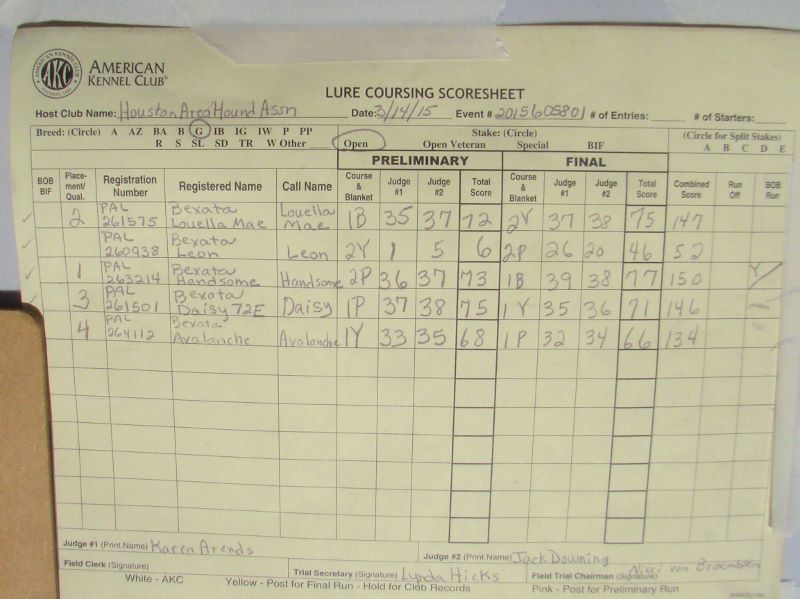 AKC AMERICAN KENNEL CLUB®
LURE COURSING SCORESHEET
Host Club Name: Houston Area Hound Assn Date: 3/14/15 Event # 2015605801 # of Entries: # of Starters:
Breed: (Circle) A AZ BA B G IB IG IW P PP Stake: (Circle) (Circle for Split Stakes)
R S SL SD TR W Other Open Open Veteran Special BIF A B C D E
PRELIMINARY FINAL
BOB BIF Placement/ Qual. Registration Number Registered Name Call Name Course & Blanket Judge #1 Judge #2 Total Score Course & Blanket Judge #1 Judge #2 Total Score Combined Score Run Off BOB Run
2 PAL 261575 Bexata Louella Mae Louella Mae 1B 35 37 72 2Y 37 38 75 147
PAL 260938 Bexata Leon Leon 2Y 1 5 6 2P 26 20 46 52
1 PAL 263214 Bexata Handsome Handsome 2P 36 37 73 1B 39 38 77 150
3 PAL 261501 Bexata Daisy 72E Daisy 1P 37 38 75 1Y 35 36 71 146
4 PAL 264112 Bexata Avalanche Avalanche 1Y 33 35 68 1P 32 34 66 134
Judge #1 (Print Name) Karen Arends Judge #2 (Print Name) Jack Downing
Field Clerk (Signature) Trial Secretary (Signature) Lynda Hicks Field Trial Chairman (Signature) Nicci van Broembsen
White - AKC Yellow - Post for Final Run - Hold for Club Records Pink - Post for Preliminary Run